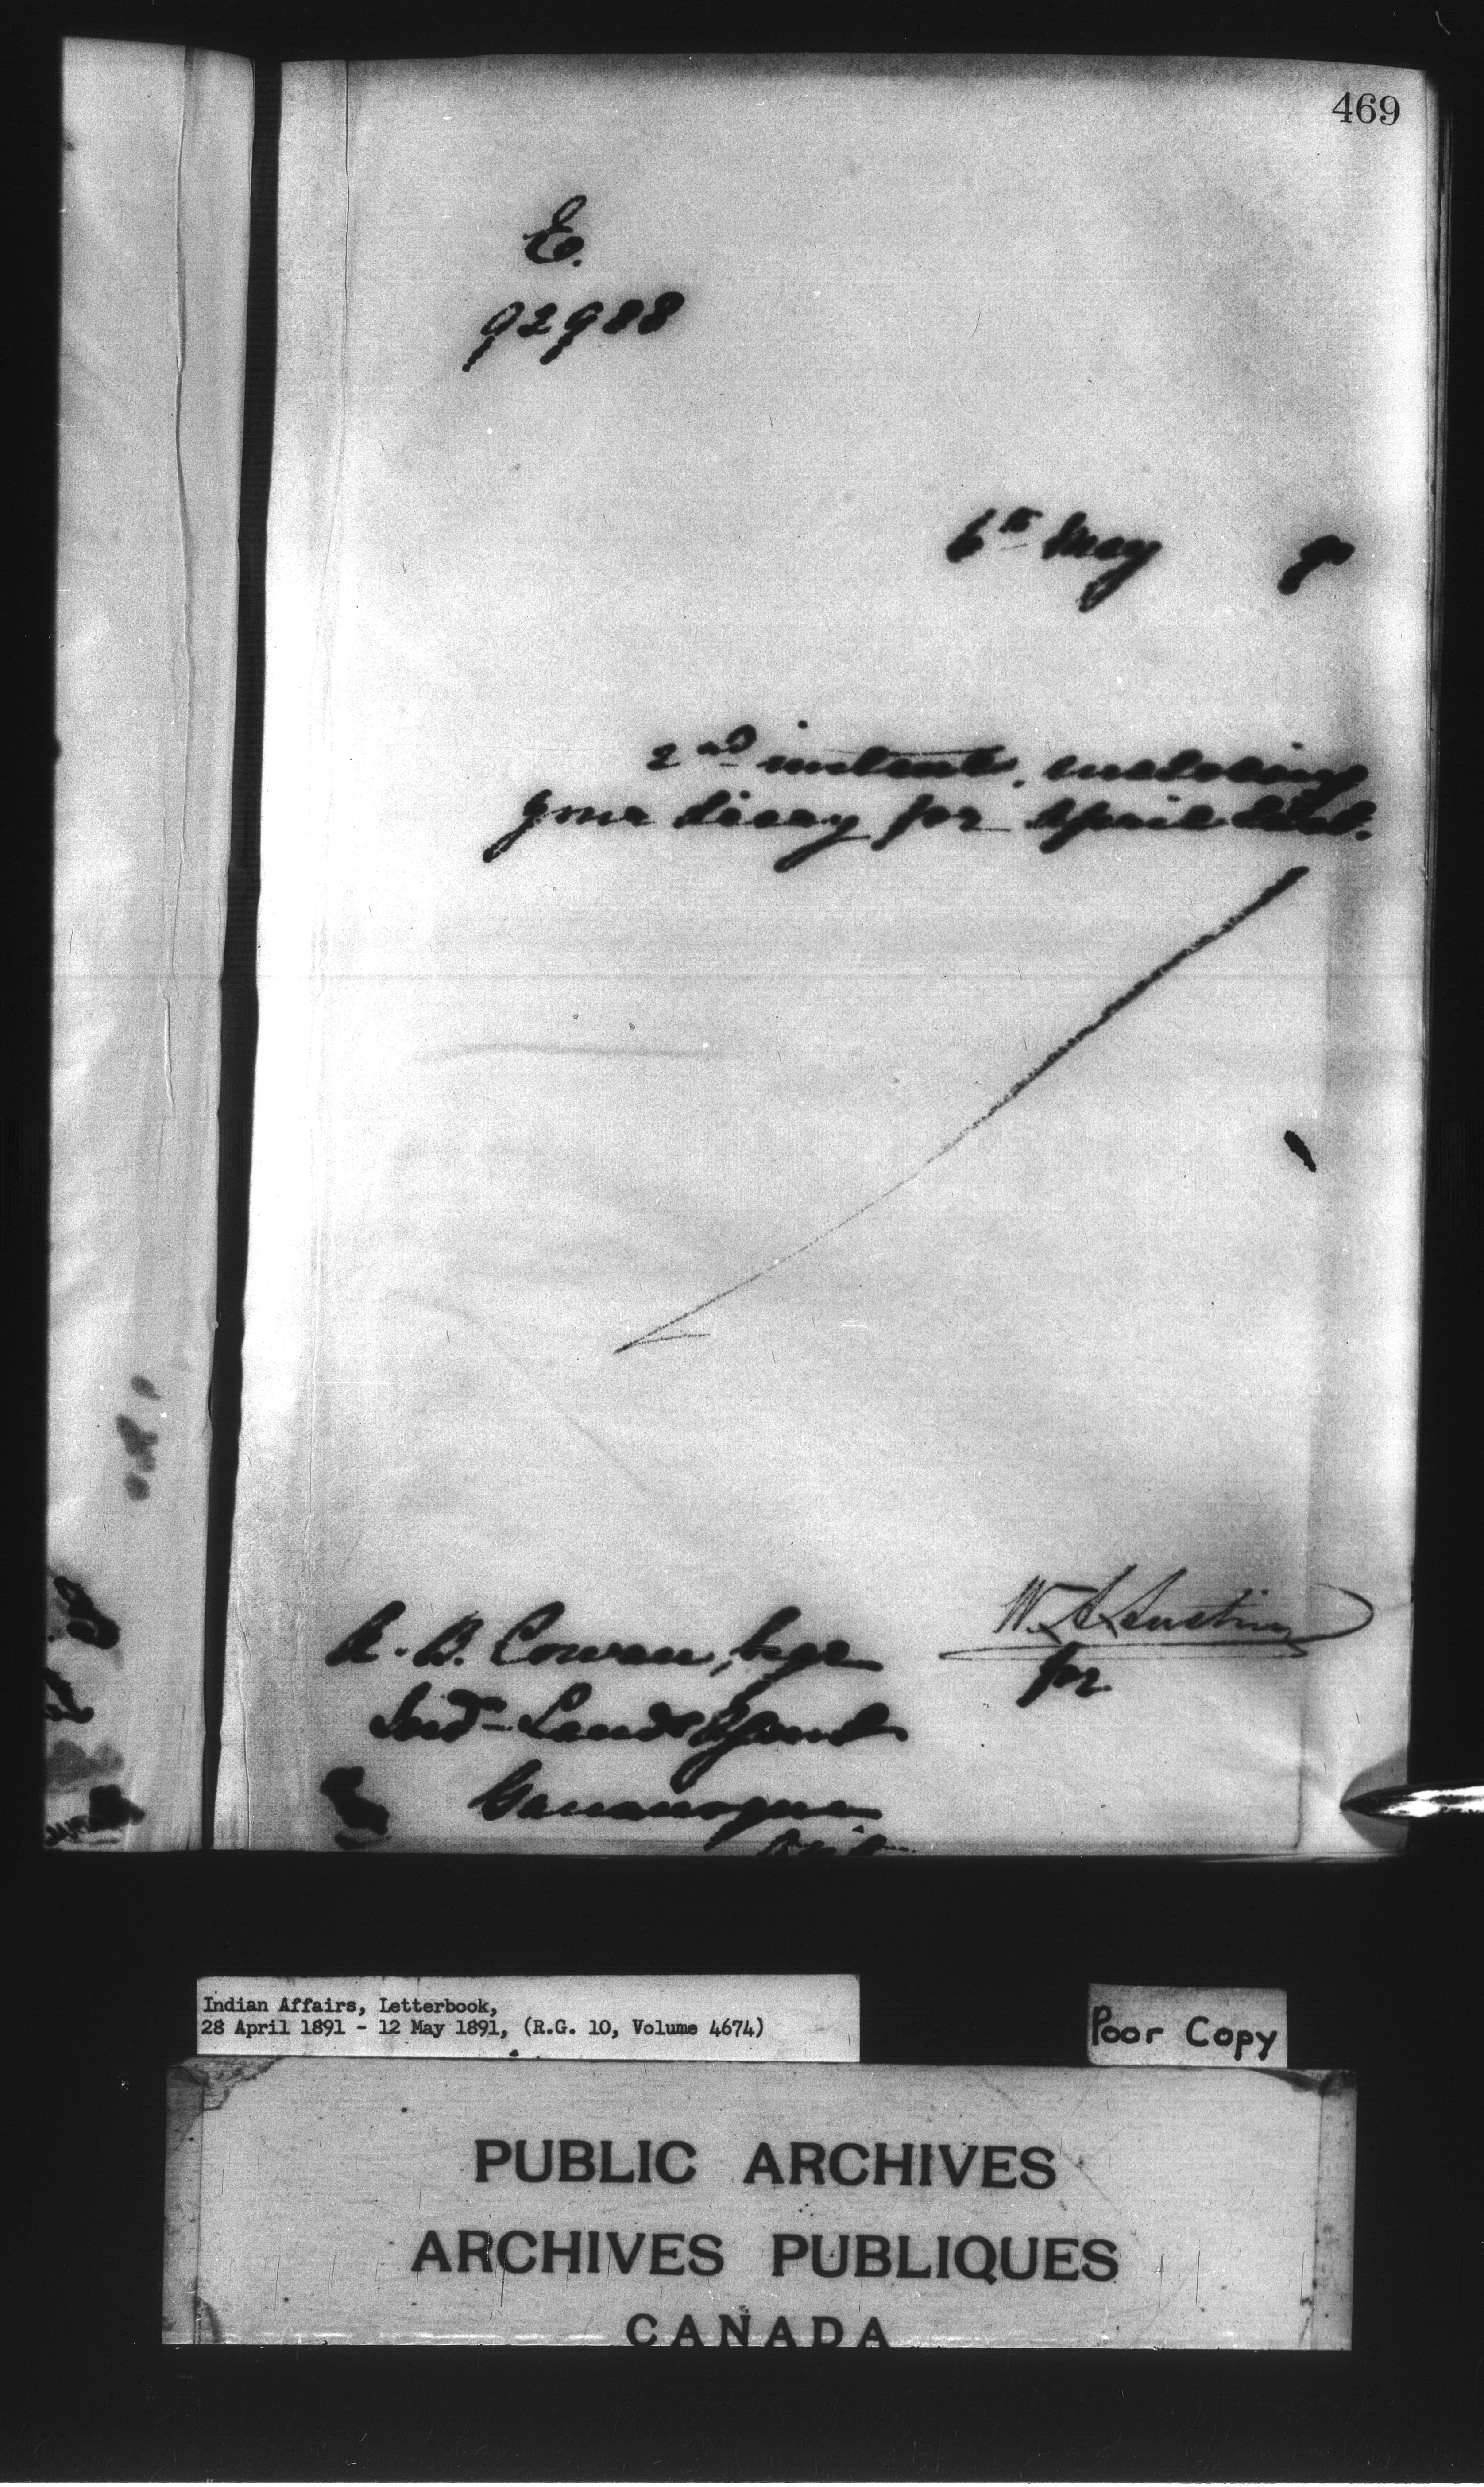 469
E.
92988
6th May 9
2nd instant, enclosing
your diary for April last.
W. A. Austin
for
B. Cowan, Esqr
Ind. Land Agent
Gananoque
Ont.
Indian Affairs, Letterbook,
28 April 1891 - 12 May 1891, (R.G. 10, Volume 4674)
Poor Copy
PUBLIC ARCHIVES
ARCHIVES PUBLIQUES
CANADA